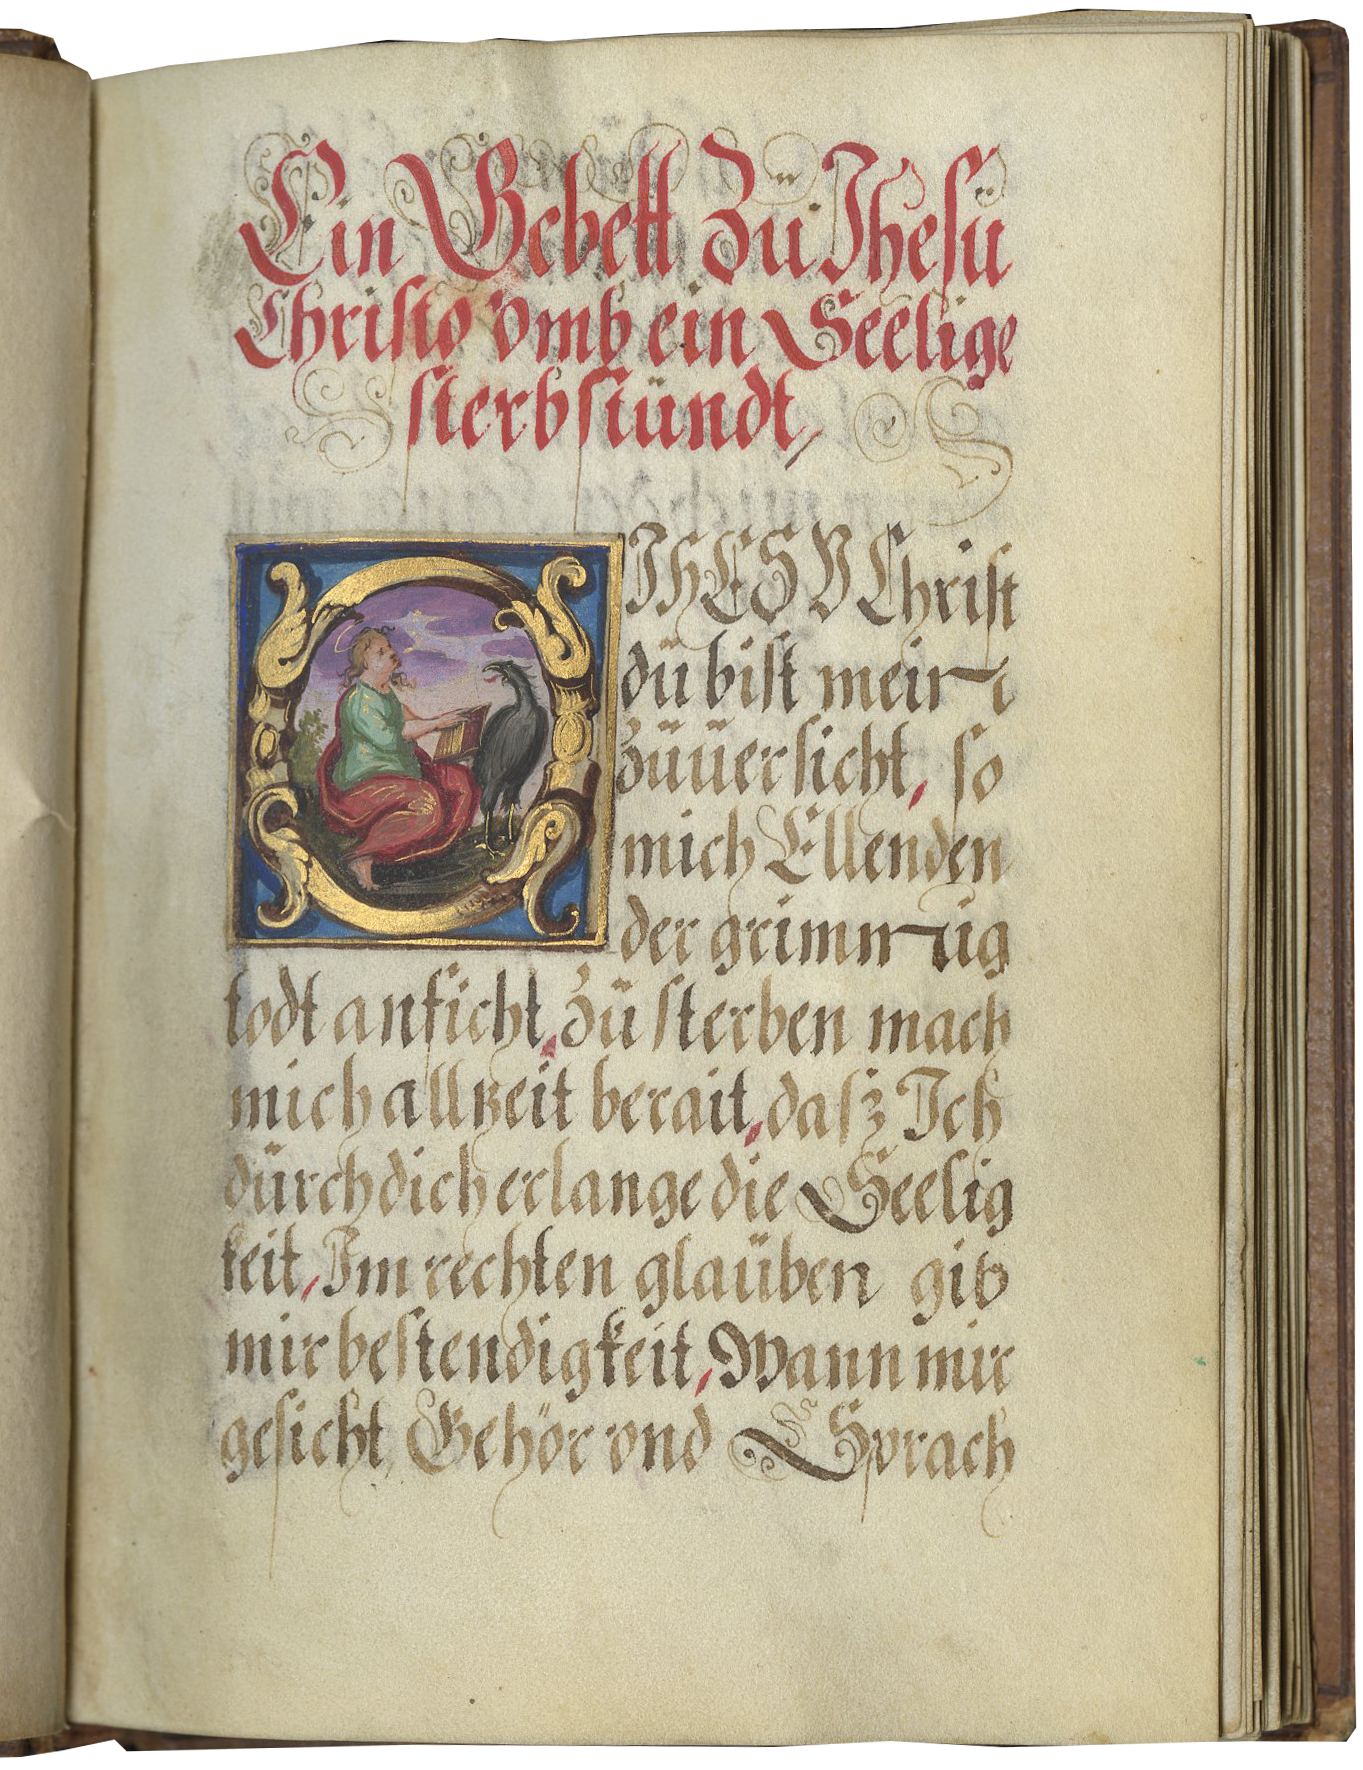 Ein Gebett Zu Jhesü
Christo vmb ein Seelige
sterbstündt,
O JHESV Christ
dü bist mein
Züüersicht, so
mich Ellenden
der grimmig
todt anficht, Zü sterben mach
mich allzeit berait, dasz Ich
dürch dich erlange die Seelig
keit, Im rechten glaüben gib
mir bestendigkeit, Wann mir
gesicht, Gehör vnd Sprach